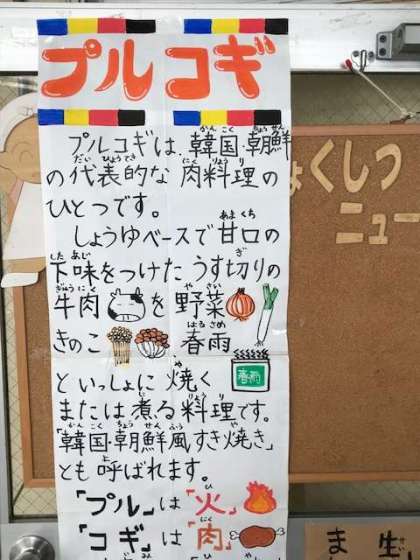 プルコギ
プルコギは、韓国・朝鮮
の代表的な肉料理の
ひとつです。
しょうゆベースで甘口の
下味をつけたうす切りの
牛肉を野菜
きのこ 春雨
春雨
といっしょに焼く
または煮る料理です。
「韓国・朝鮮風すき焼き」
とも呼ばれます。
「プル」は「火」
「コギ」は「肉」
くしつ
ニュー
生
ま